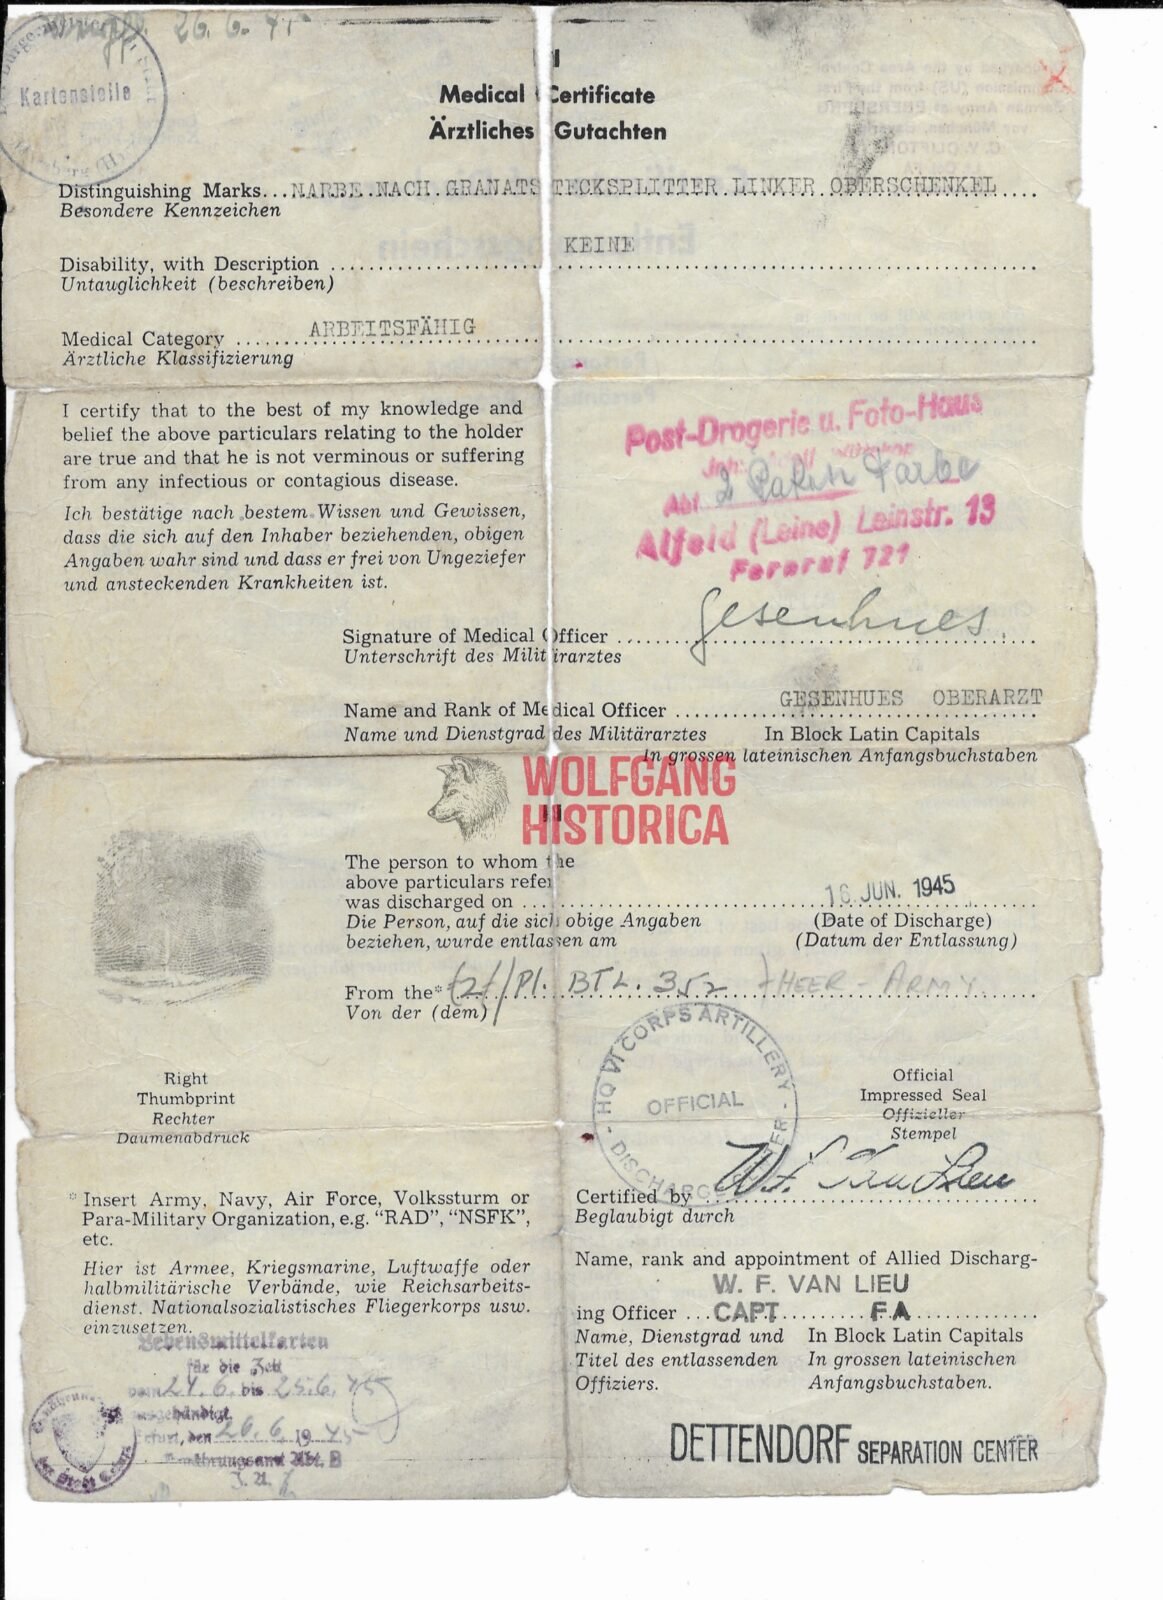 26. 6. 45
Kartenstelle
II
Medical Certificate
Ärztliches Gutachten
Distinguishing Marks...NARBE.NACH.GRANATSTECKSPLITTER.LINKER.OBERSCHENKEL....
Besondere Kennzeichen
KEINE
Disability, with Description
Untauglichkeit (beschreiben)
Medical Category ARBEITSFÄHIG
Ärztliche Klassifizierung
I certify that to the best of my knowledge and
belief the above particulars relating to the holder
are true and that he is not verminous or suffering
from any infectious or contagious disease.
Ich bestätige nach bestem Wissen und Gewissen,
dass die sich auf den Inhaber beziehenden, obigen
Angaben wahr sind und dass er frei von Ungeziefer
und ansteckenden Krankheiten ist.
Post-Drogerie u. Foto-Haus
Abt. 2 Paketn Farbe
Alfeld (Leine) Leinstr. 13
Fernruf 721
Signature of Medical Officer Gesenhues
Unterschrift des Militärarztes
GESENHUES OBERARZT
Name and Rank of Medical Officer
Name und Dienstgrad des Militärarztes In Block Latin Capitals
In grossen lateinischen Anfangsbuchstaben
WOLFGANG
HISTORICA
The person to whom the
above particulars refer
was discharged on 16 JUN. 1945
Die Person, auf die sich obige Angaben (Date of Discharge)
beziehen, wurde entlassen am (Datum der Entlassung)
From the* (2/Pl. BTL. 352) HEER - ARMY
Von der (dem)
HQ VI CORPS ARTILLERY
OFFICIAL
Right
Thumbprint
Rechter
Daumenabdruck
Official
Impressed Seal
Offizieller
Stempel
* Insert Army, Navy, Air Force, Volkssturm or
Para-Military Organization, e.g. "RAD", "NSFK",
etc.
Hier ist Armee, Kriegsmarine, Luftwaffe oder
halbmilitärische Verbände, wie Reichsarbeits-
dienst. Nationalsozialistisches Fliegerkorps usw.
einzusetzen.
Certified by W. F. Van Lieu
Beglaubigt durch
Name, rank and appointment of Allied Discharg-
W. F. VAN LIEU
ing Officer ...CAPT.........FA
Name, Dienstgrad und In Block Latin Capitals
Titel des entlassenden In grossen lateinischen
Offiziers. Anfangsbuchstaben.
Lebensmittelkarten
für die Zeit
vom 24. 6. bis 25. 6. 45
ausgehändigt
Erfurt, den 26. 6. 1945
Ernährungsamt Abt. B
DETTENDORF SEPARATION CENTER